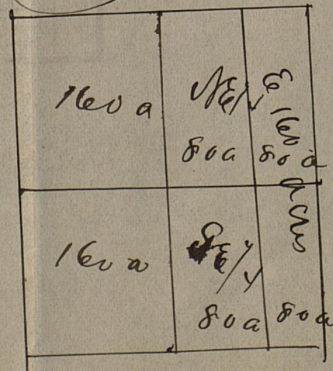 160 a
NE/4
80a
80 a
E 160 acres
160 a
SE/4
80a
80a